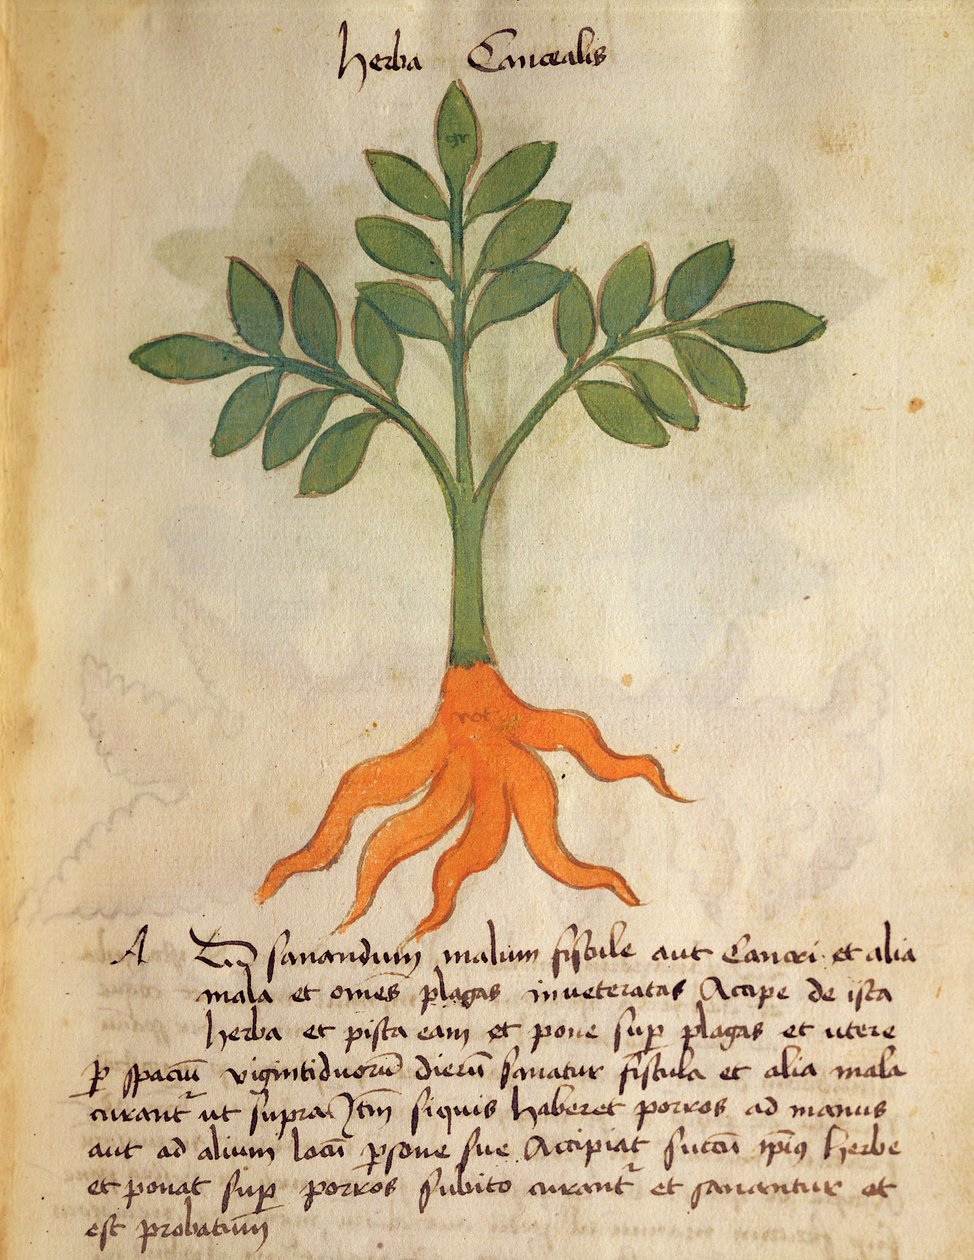 herba Cancealis
gr
rot
A D sanandum malum fistule aut Cancri et alia
mala et om̄es plagas inueteratas Accipe de ista
herba et pista eam et pone sup plagas et utere
p spaciū vigintiduorū dierū sanatur fistula et alia mala
curant ut supra Itm̄ siquis haberet porros ad manus
aut ad alium locū psone sue Accipiat succū ipiꝰ herbe
et ponat sup porros subito curant et sanantur et
est probatum